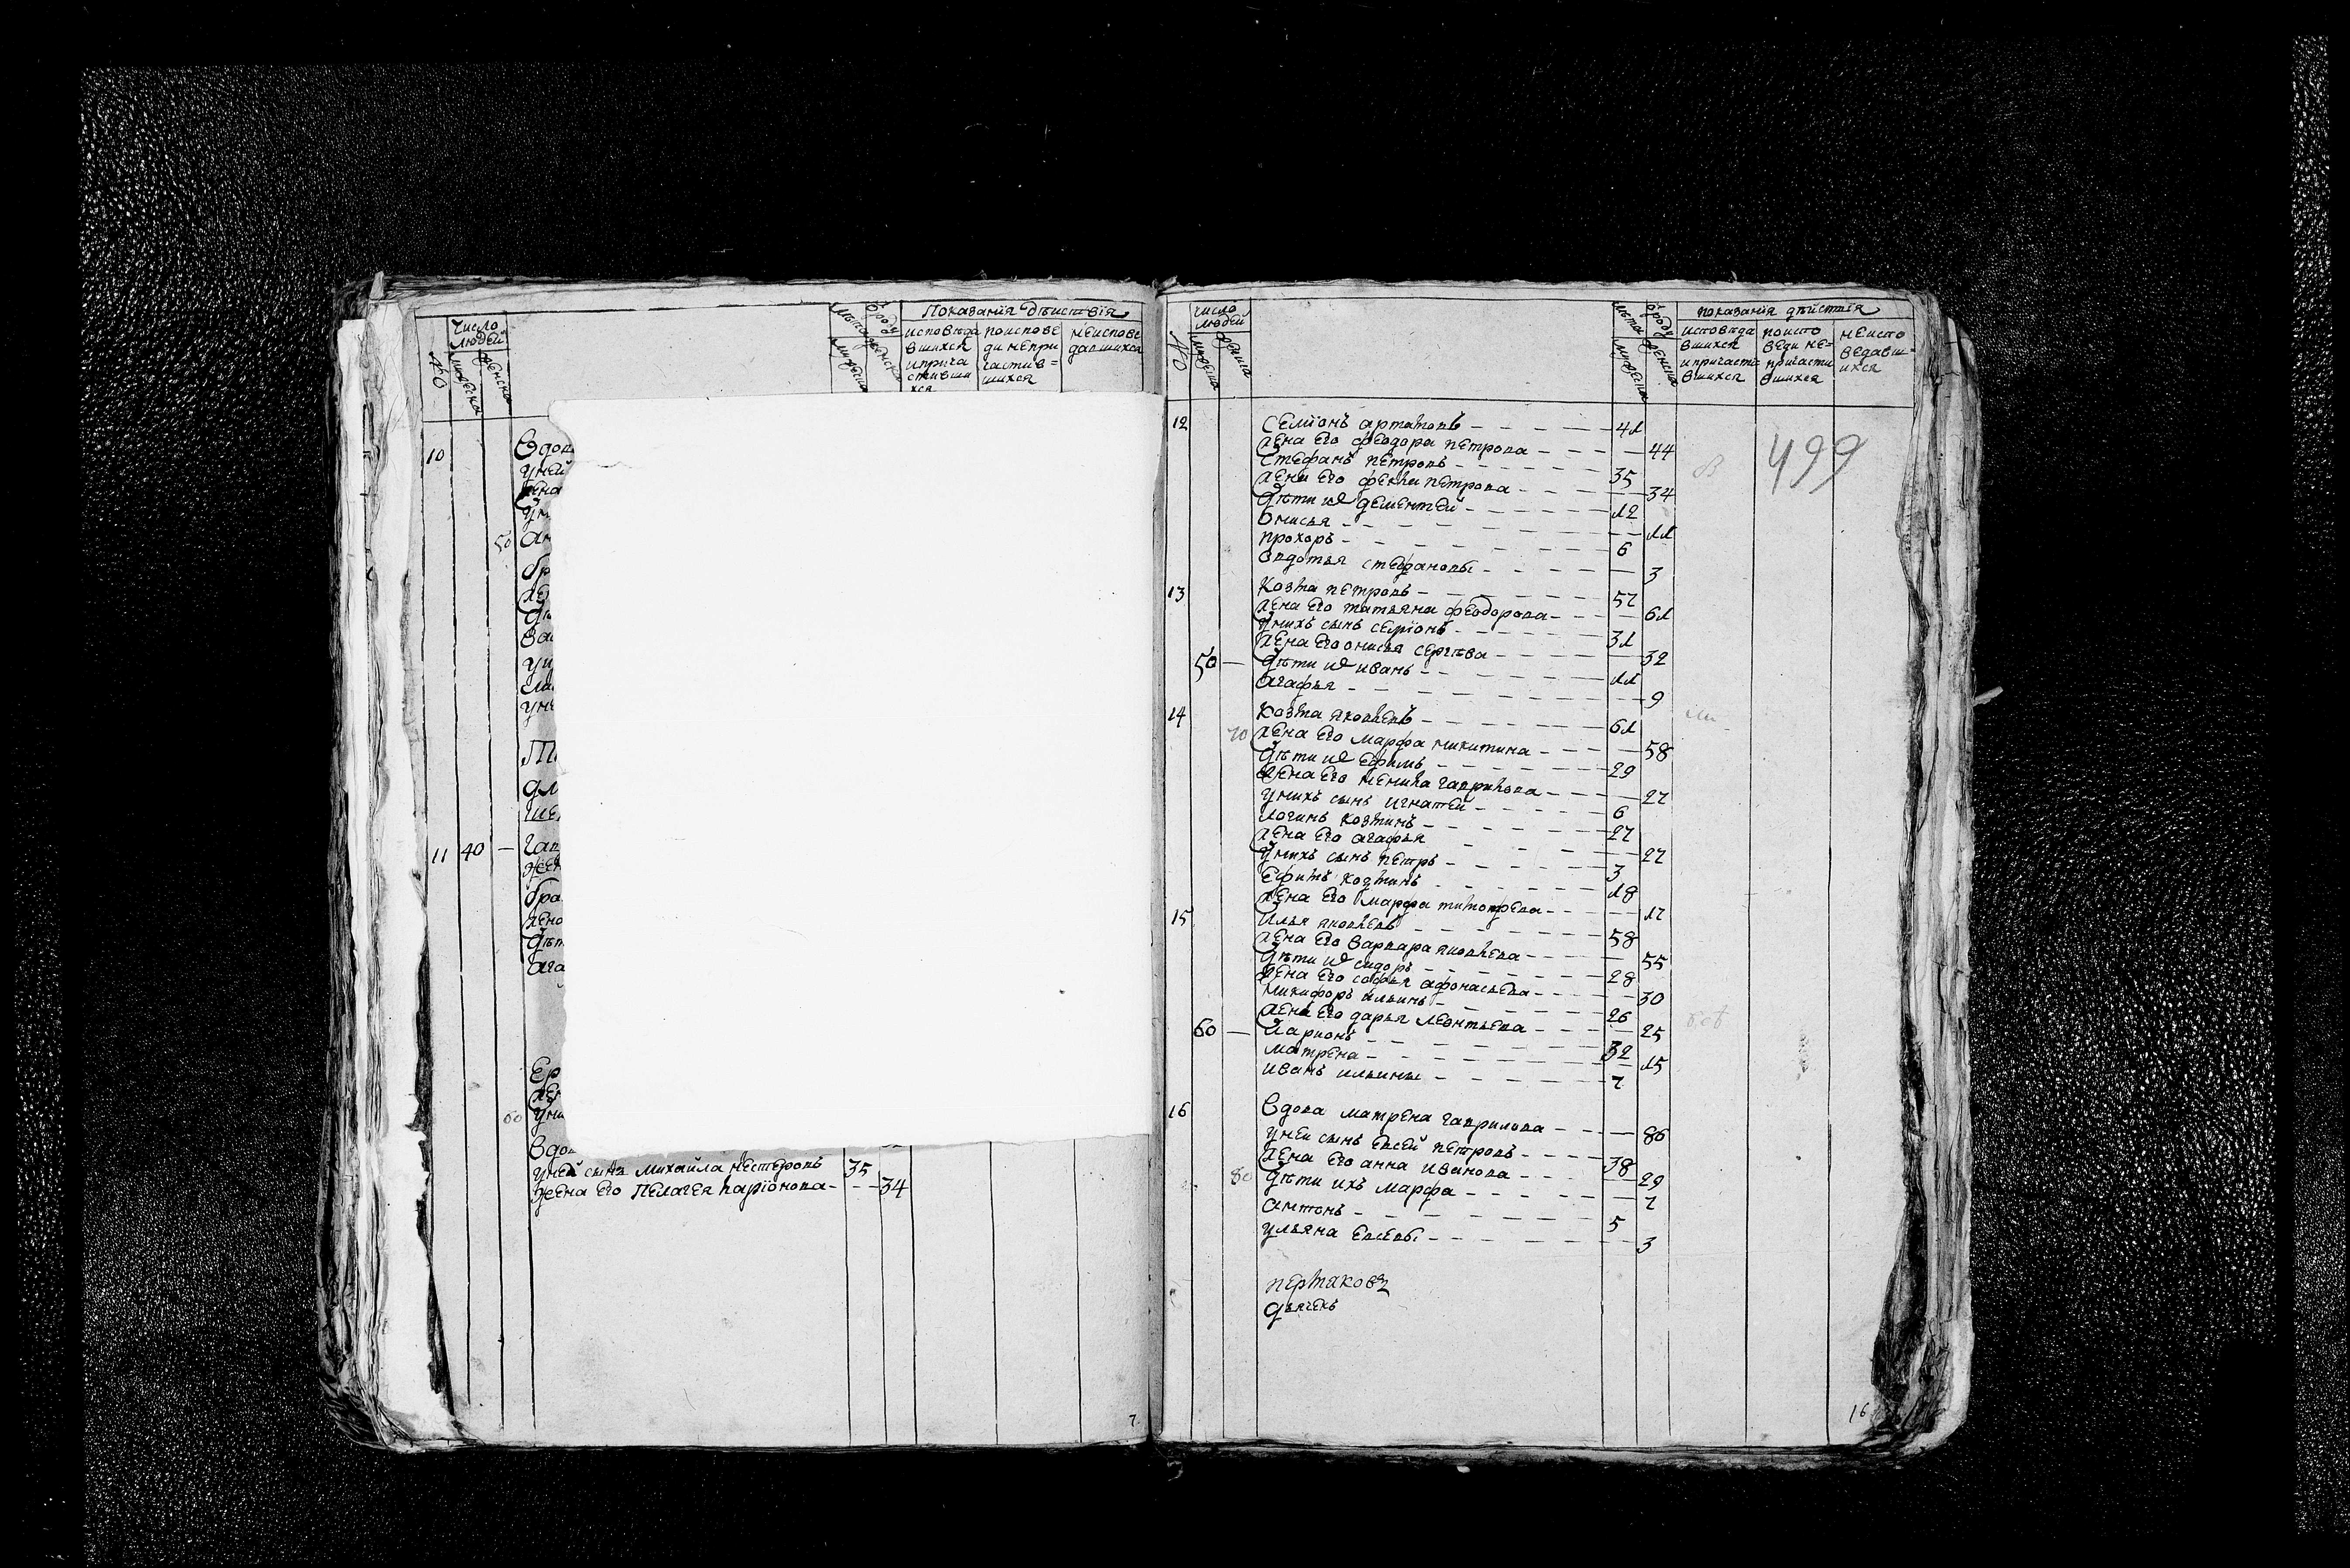 Число людей
№
мужска
женска
Лѣта
ѿ роду
мужска
женска
Показанїя дѣиствїя
исповѣдавшихся и причастившихся
по исповеди непричастив=шихся
неисповедавшихся
10
Вдов
у ней
жена
у ни
50
Ан
бр
жен
дѣ
Ва
у ни
у не
11 40 —
Гав
жен
бра
жена
дѣт
ага
Ер
жен
60
у ни
Вдов
у ней сынъ михайла нестеровъ 35
жена его Пелагея ларїонова - - - 34
7
Число людей
№
мужска
женска
лѣта
ѿ роду
мужска
женска
показанїя дѣйствїя
исповѣдавшихся и причастившихся
по исповеди не=причастившихся
неисповедавш=ихся
499
12 семїонъ артамоновъ - - - - 41
жена его феодора петрова - - - - 44
стефанъ петровъ - - - - 35
жена его фекла петрова - - - - 34
дѣти их дементей - - - - 12
Онисья - - - - 11
прохоръ - - - - 6
Овдотья стефановы - - - - 3
13 козма петровъ - - - - 57
жена его татьяна феодорова - - - - 61
у нихъ сынъ семїонъ - - - - 31
жена его онисья сергѣва - - - - 32
50 — дѣти их иванъ - - - - 11
агафья - - - - 9
14 козма яковлевъ - - - - 61
70 жена его марфа никитина - - - - 58
дѣти их ефимъ - - - - 29
жена его ненила гаврилова - - - - 27
у нихъ сынъ игнатей - - - - 6
логинъ козминъ - - - - 27
жена его агафья - - - - 27
у нихъ сынъ петръ - - - - 3
ефимъ козминъ - - - - 18
жена его марфа тимофеева - - - - 17
15 илья яковлевъ - - - - 58
жена его варвара яковлева - - - - 55
дѣти их сидоръ - - - - 28
жена его софья афонасьева - - - - 30
никифоръ ильинъ - - - - 26
жена его дарья леонтьева - - - - 25
60 — иларионъ - - - -
матрена - - - - 15
иванъ ильины - - - - 7
16 Вдова матрена гаврилова - - - - 86
у неи сынъ евсей петровъ - - - - 38
жена его анна иванова - - - - 29
80 дѣти ихъ марфа - - - - 7
антонъ - - - - 5
ульяна евсевы - - - - 3
пермяковъ
дьячекъ
16